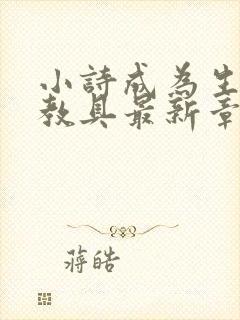 小詩成為生
教具最新章
蔣皓